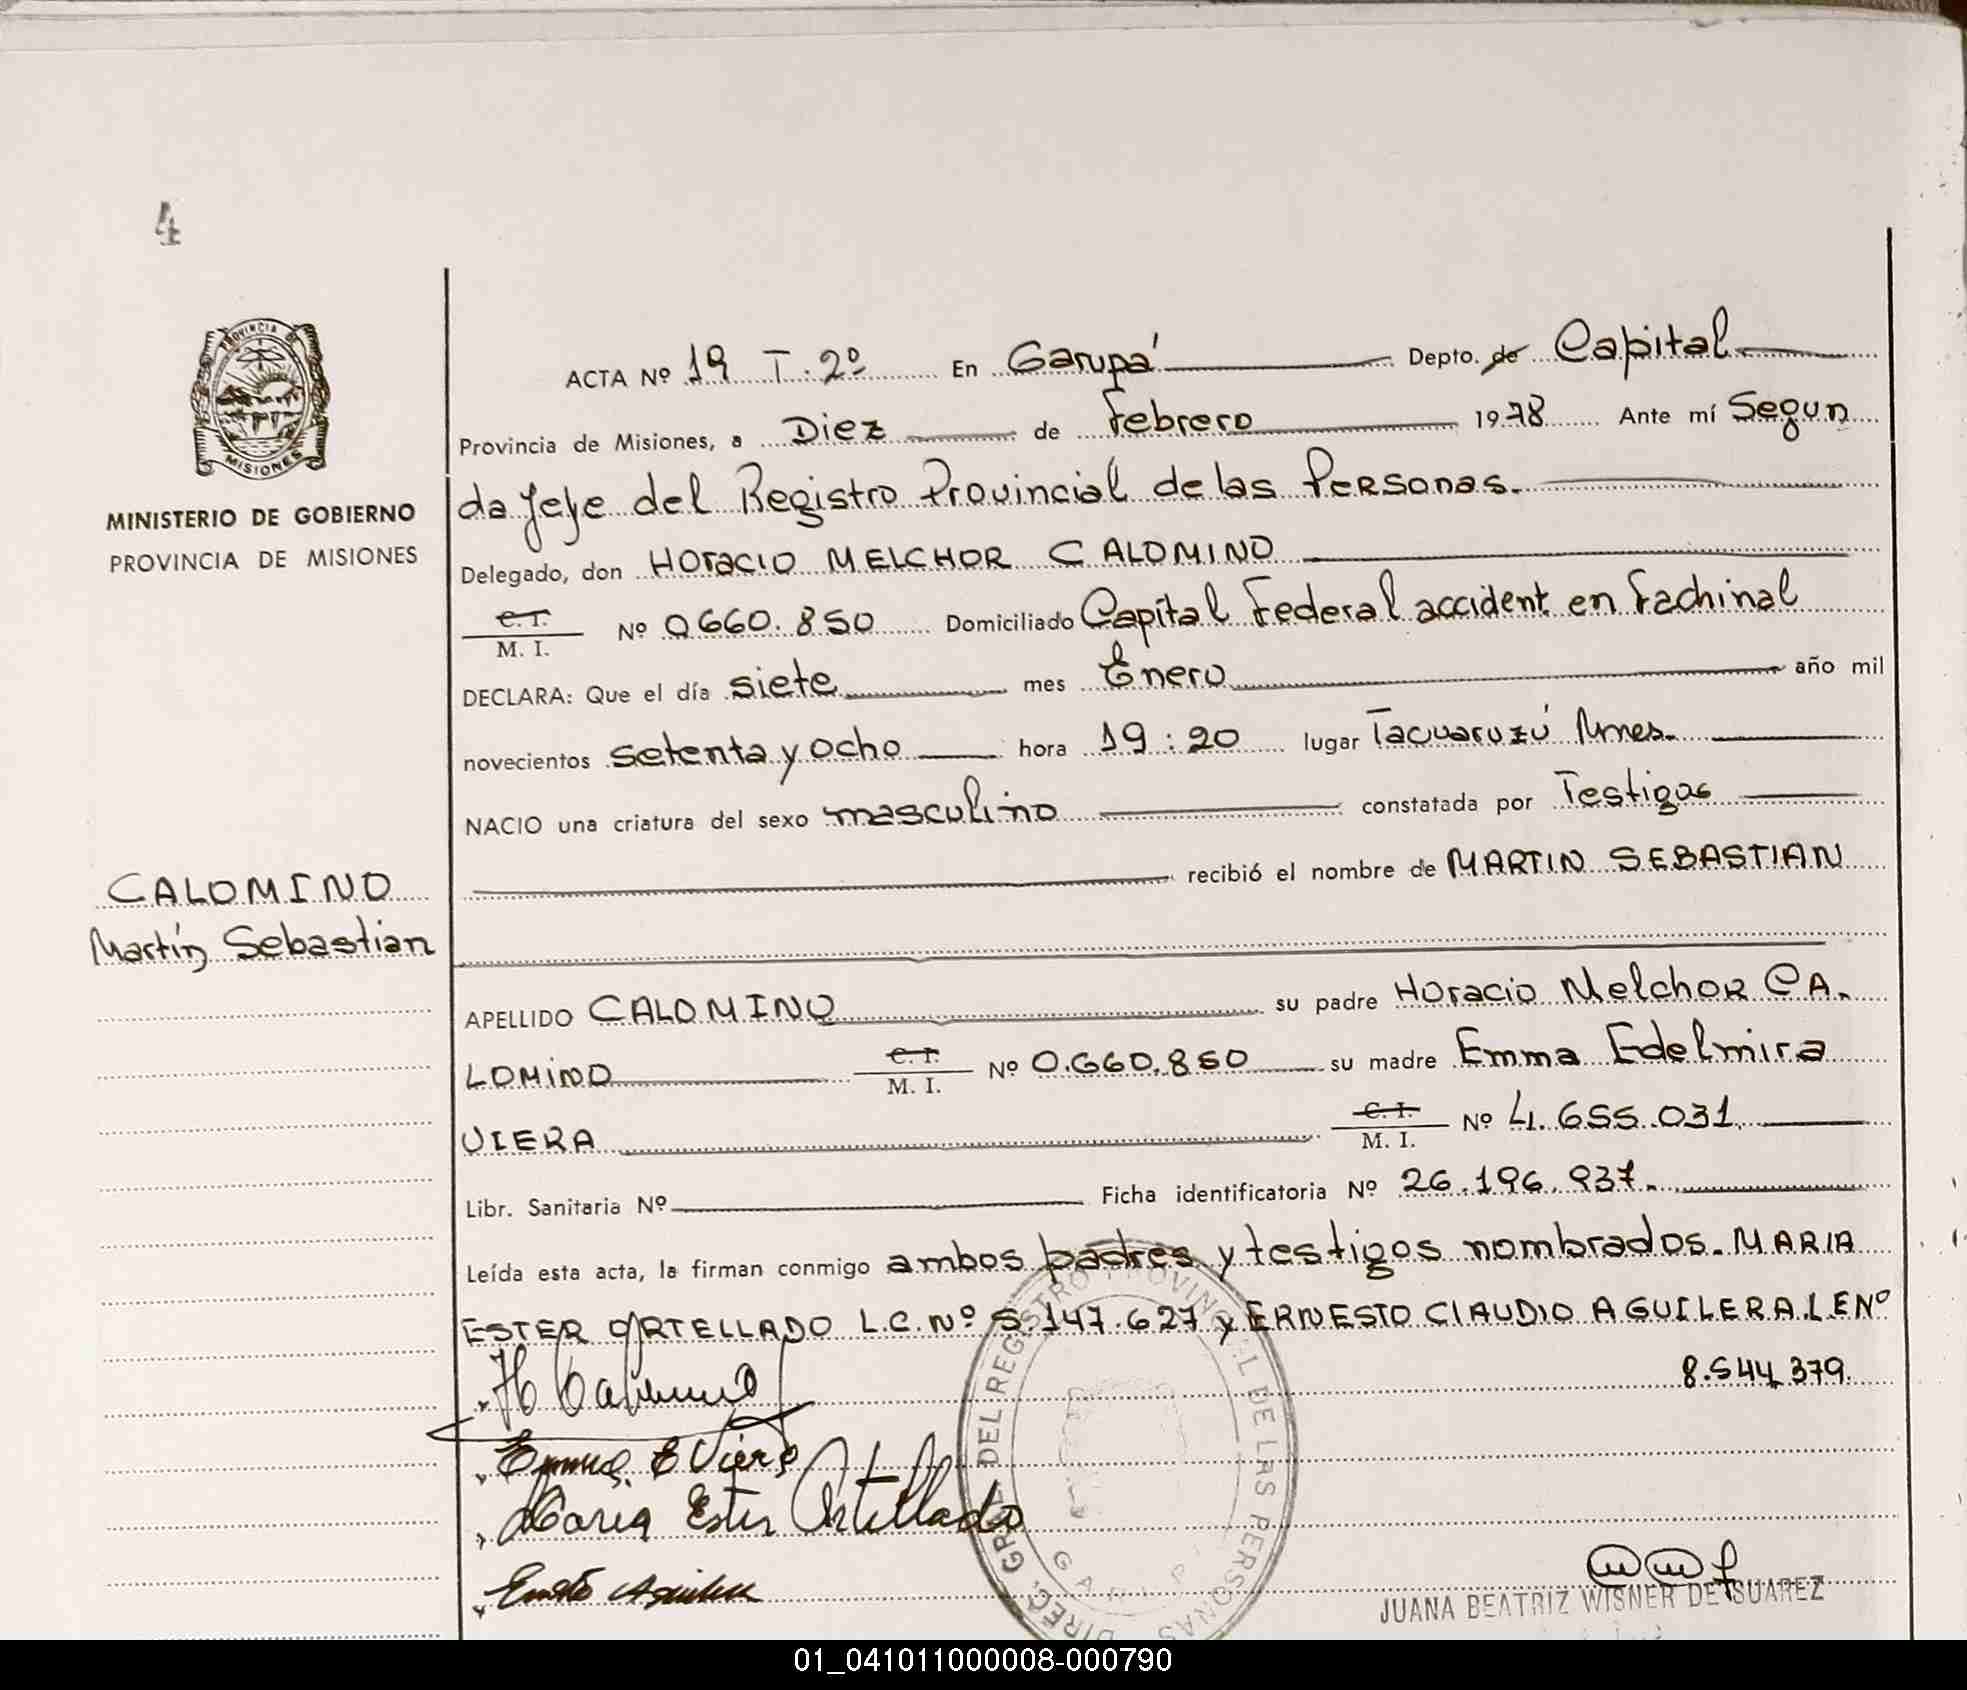 4
PROVINCIA DE
MISIONES
MINISTERIO DE GOBIERNO
PROVINCIA DE MISIONES
CALOMINO
Martín Sebastian
ACTA Nº 19 T. 2º En Garupá Depto. de Capital
Provincia de Misiones, a Diez de Febrero 1978 Ante mí Segun
da Jefe del Registro Provincial de las Personas.
Delegado, don HORACIO MELCHOR CALOMINO
C. I.
M. I. Nº 0660.850 Domiciliado Capital Federal accident. en Fachinal
DECLARA: Que el día siete mes Enero año mil
novecientos setenta y ocho hora 19:20 lugar Tacuaruzú Mnes.
NACIO una criatura del sexo masculino constatada por Testigos
recibió el nombre de MARTIN SEBASTIAN
APELLIDO CALOMINO su padre Horacio Melchor CA.
LOMINO C. I.
M. I. Nº 0.660.850 su madre Emma Edelmira
VIERA C. I.
M. I. Nº 4.655.031
Libr. Sanitaria Nº Ficha identificatoria Nº 26.196.937.
Leída esta acta, la firman conmigo ambos padres y testigos nombrados. MARIA
ESTER ORTELLADO L.C. Nº 5.147.627 y ERNESTO CLAUDIO AGUILERA L.E Nº
8.544.379.
Emma E Viera
Maria Ester Ortellado
Ernesto Aguilera
DIREC. GRAL. DEL REGISTRO PROVINCIAL DE LAS PERSONAS
GARUPA
JUANA BEATRIZ WISNER DE SUAREZ
01_041011000008-000790